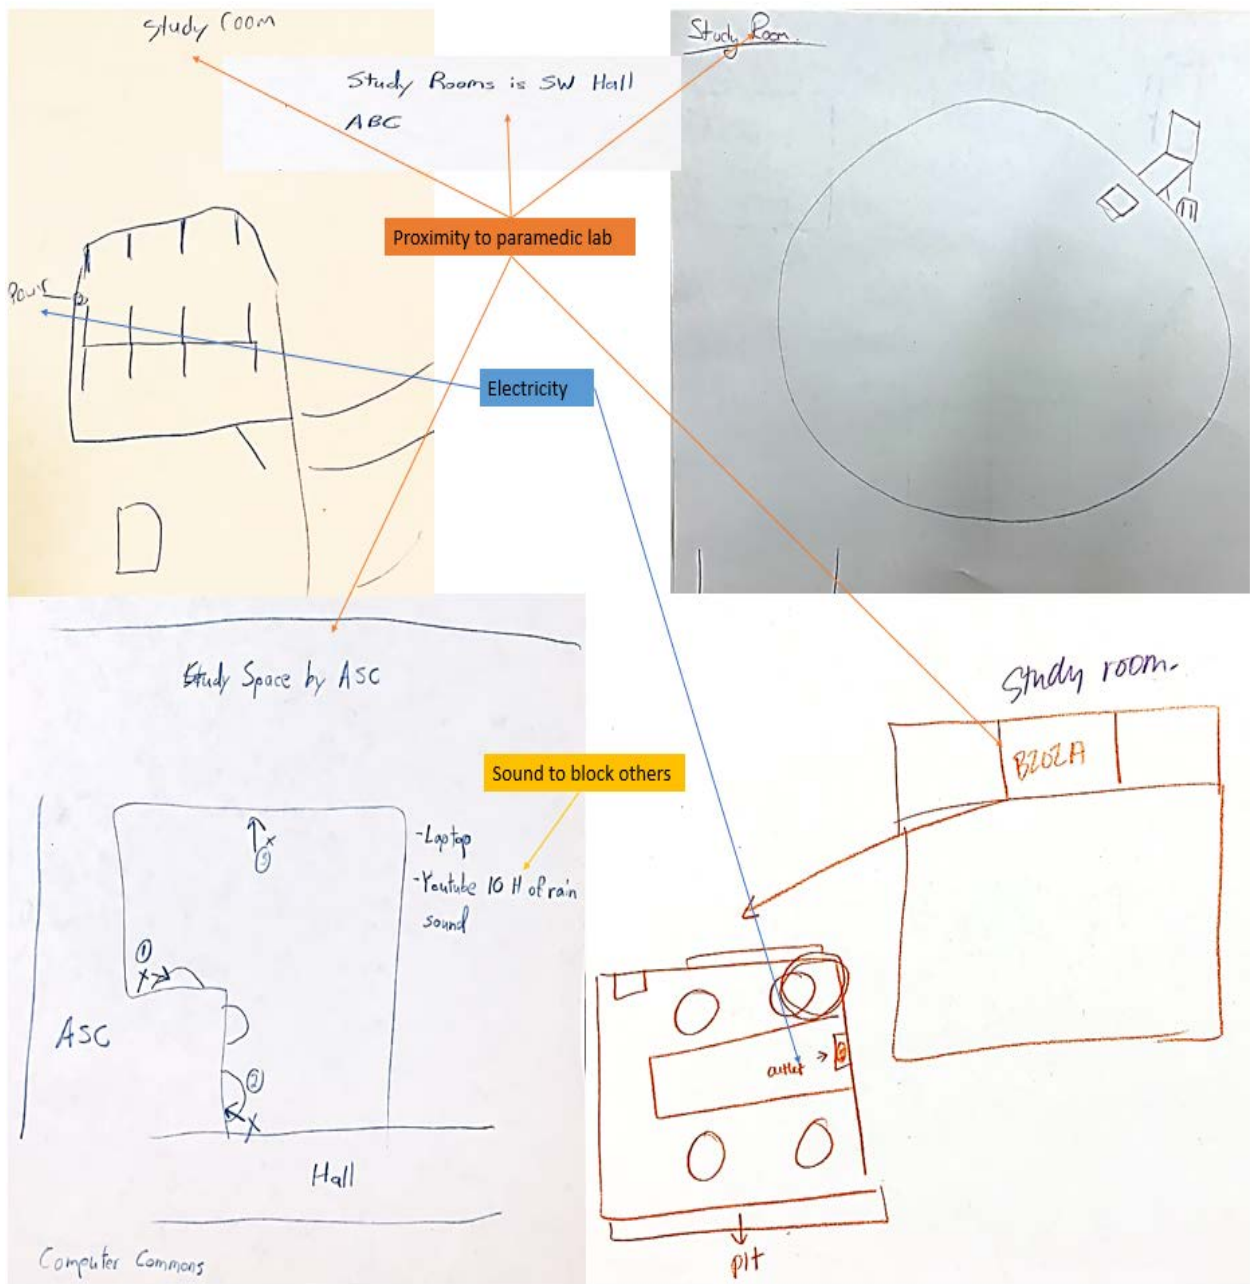 Study room
Study Rooms is SW Hall
ABC
Study Room.
Proximity to paramedic lab
Powr
Electricity
Study Space by ASC
Sound to block others
-Laptop
-Youtube 10 H of rain
sound
3
1
X
ASC
2
X
Hall
Computer Commons
Study room.
B202A
outlet